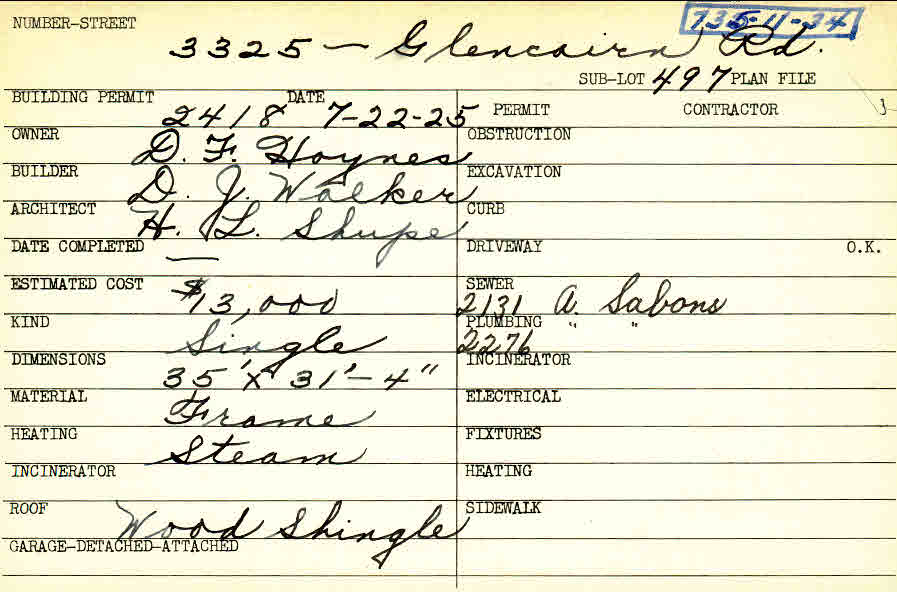 NUMBER-STREET 735-11-34
3325 - Glencairn Rd.
SUB-LOT 497 PLAN FILE
BUILDING PERMIT 2418 DATE 7-22-25
PERMIT CONTRACTOR
OWNER D. F. Hoynes
OBSTRUCTION
BUILDER D. J. Walker
EXCAVATION
ARCHITECT H. L. Shupe
CURB
DATE COMPLETED —
DRIVEWAY O.K.
ESTIMATED COST $13,000
SEWER 2131 A. Sabons
KIND Single
PLUMBING 2276 " "
DIMENSIONS 35' x 31'-4"
INCINERATOR
MATERIAL Frame
ELECTRICAL
HEATING Steam
FIXTURES
INCINERATOR
HEATING
ROOF Wood Shingle
SIDEWALK
GARAGE-DETACHED-ATTACHED